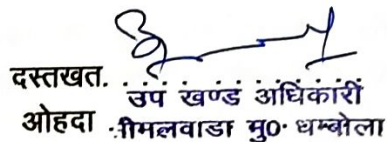 दस्तखत.
उप खण्ड अधिकारी
ओहदा सीमलवाडा मु0· धम्बोला